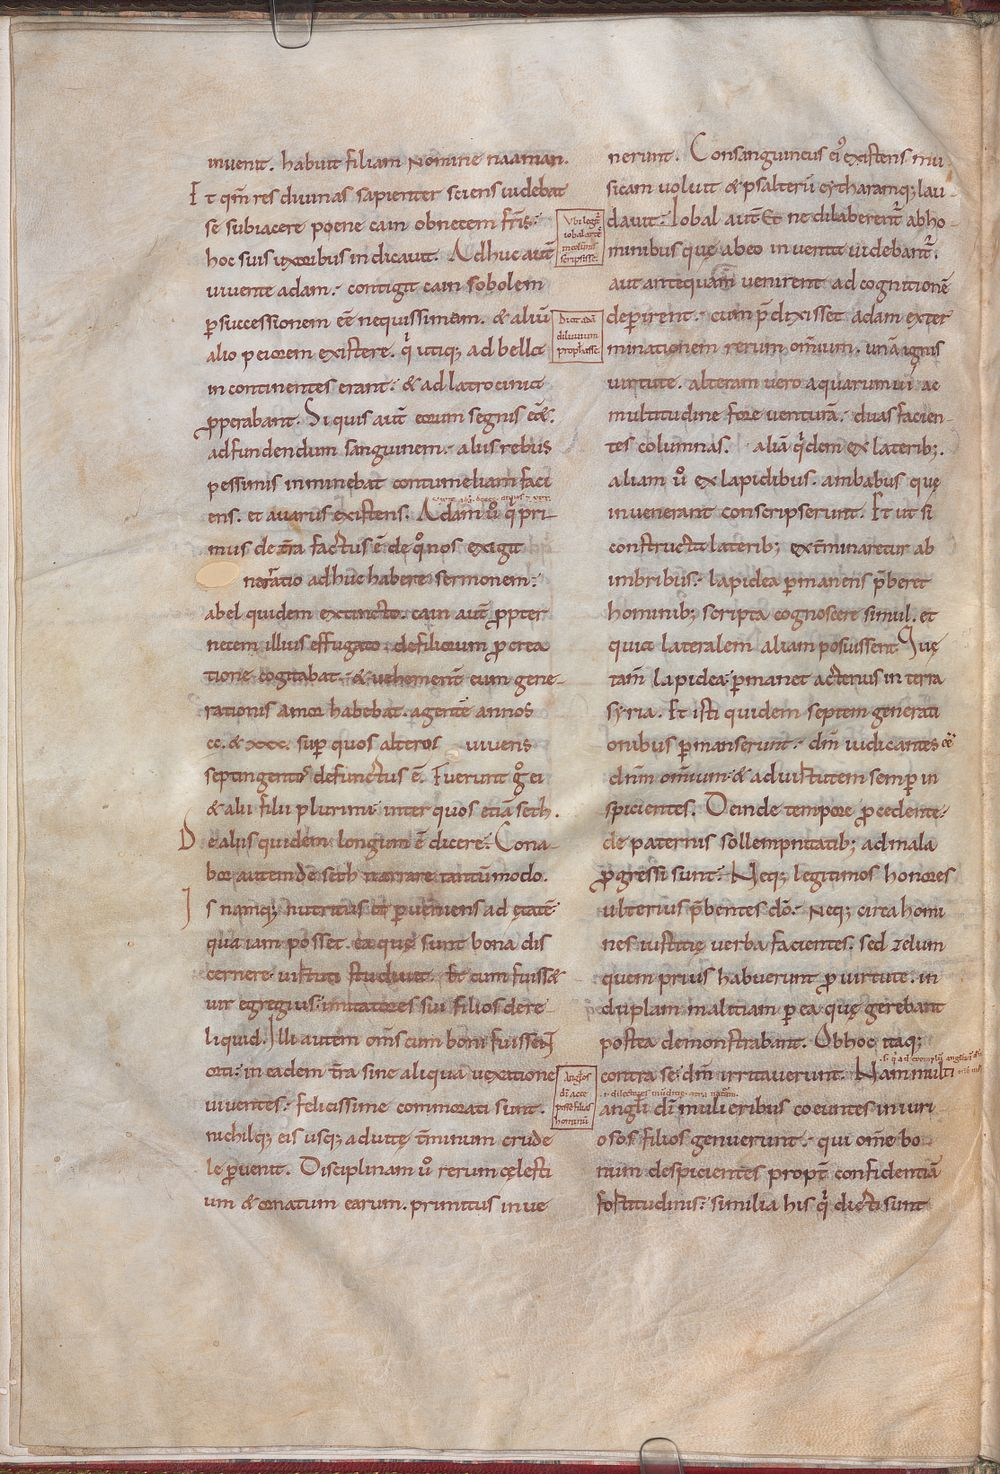 inuenit. habuit filiam Nomine naaman.
Et qm̄ res diuinas sapienter sciens uidebat
se subiacere poene cain obnecem fr̄is.
hoc suis uxoribus indicauit. Adhuc aut̄
uiuente adam. contigit cain sobolem
ꝑsuccessionem eē nequissimam. & aliū
alio peiorem existere. qͥ utiq; ad bella
incontinentes erant. & ad latrocinia
ꝓperabant. Si quis aut̄ eorum segnis eēt.
adfundendum sanguinem. aliis rebus
pessimis inminebat contumeliam faci
ens. et auarus existens. Adam ů qͥ pri
mus de t̄ra factus ē de qͦ nos exigit
narratio adhuc habere sermonem.
abel quidem extincto. cain aut̄ ꝓpter
necem illius effugato. defiliorum ꝓcrea
tione cogitabat. & uehement̄ eum gene
rationis amor habebat. agente annos
cc. & xxx. suꝑ quos alteros uiuens
septingentos defunctus ē. Fuerunt gͦ ei
& alii filii plurimi. inter quos etiā seth.
De aliis quidem longum ē dicere. Cona
bor autem de seth narrare tantūmodo.
Is namq; nutritus et ꝑueniens ad ętatē
qua iam posset. ea quę sunt bona dis
cernere. uirtuti studuit. Et cum fuiss&
uir egregius. imitatores sui filios dere
liquid. Illi autem om̄s cum boni fuissent
orti. in eadem t̄ra sine aliqua uexatione
uiuentes. felicissime commorati sunt.
nichilq; eis usq; aduitę t̄minum crude
le ꝑuenit. Disciplinam ů rerum cęlesti
um & ornatum earum. primitus inue
Vbi legit̄
iobal arte
musicā
scripsisse
Dicit adā
diluuium
prophasse
Angl̄os
dī acce
pisse filias
hominū
nerunt. Consanguineus ei⁹ existens mu
sicam uoluit & psalteriū cytharamq; lau
dauit. Iobal aut̄ Et ne dilaberent̄ abho
minibus quę abeo inuenta uidebant̄.
aut antequam uenirent ad cognitionē
deperirent. cum p̄dixisset adam exter
minationem rerum om̄ium. unā ignis
uirtute. alteram uero aquarum ui ac
multitudine fore venturā. duas facien
tes columnas. aliā qͥdem ex laterib;.
aliam ů ex lapidibus. ambabus quę
inuenerant conscripserunt. Et ut si
constructa laterib; ext̄minaretur ab
imbribus. lapidea ꝑmanens p̄beret
hominib; scripta cognoscere simul. et
quia lateralem aliam posuissent Quę
tam̄ lapidea ꝑmanet actenus in terra
syria. Et isti quidem septem generati
onibus ꝑmanserunt. dm̄ iudicantes eē
dn̄m omnium & aduirtutem semꝑ in
spicientes. Deinde tempore ꝓcedente.
de paternis sollempnitatib; admala
ꝓgressi sunt. Neq; legitimos honores
ulterius p̄bentes dō. Neq; circa homi
nes iustitię uerba facientes. sed zelum
quem prius habuerunt ꝓ uirtute. in
duplam malitiam ꝑ ea quę gerebant
postea demonstrabant. Obhoc itaq;
contra se dm̄ irritauerunt. Nam multi
angl̄i dī mulieribus coeuntes iniuri
osos filios genuerunt. qui omne bo
num despicientes propt̄ confidentiā
fortitudinis. similia his qͥ dicti sunt